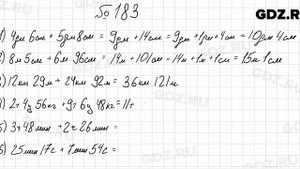 GDZ.RU
№ 183
1) 4дм 6см + 5дм 8см = 9дм + 14см = 9дм + 1дм + 4см = 10дм 4см
2) 8м 5см + 6м 96см = 14м + 101см = 14м + 1м + 1см = 15м 1см
3) 12км 29м + 24км 92м = 36км 121м
4) 2т 4ц 56кг + 9т 6ц 48кг = 11т
5) 3ч 48мин + 2ч 26мин =
6) 25мин 17с + 7мин 54с =
GDZ.RU